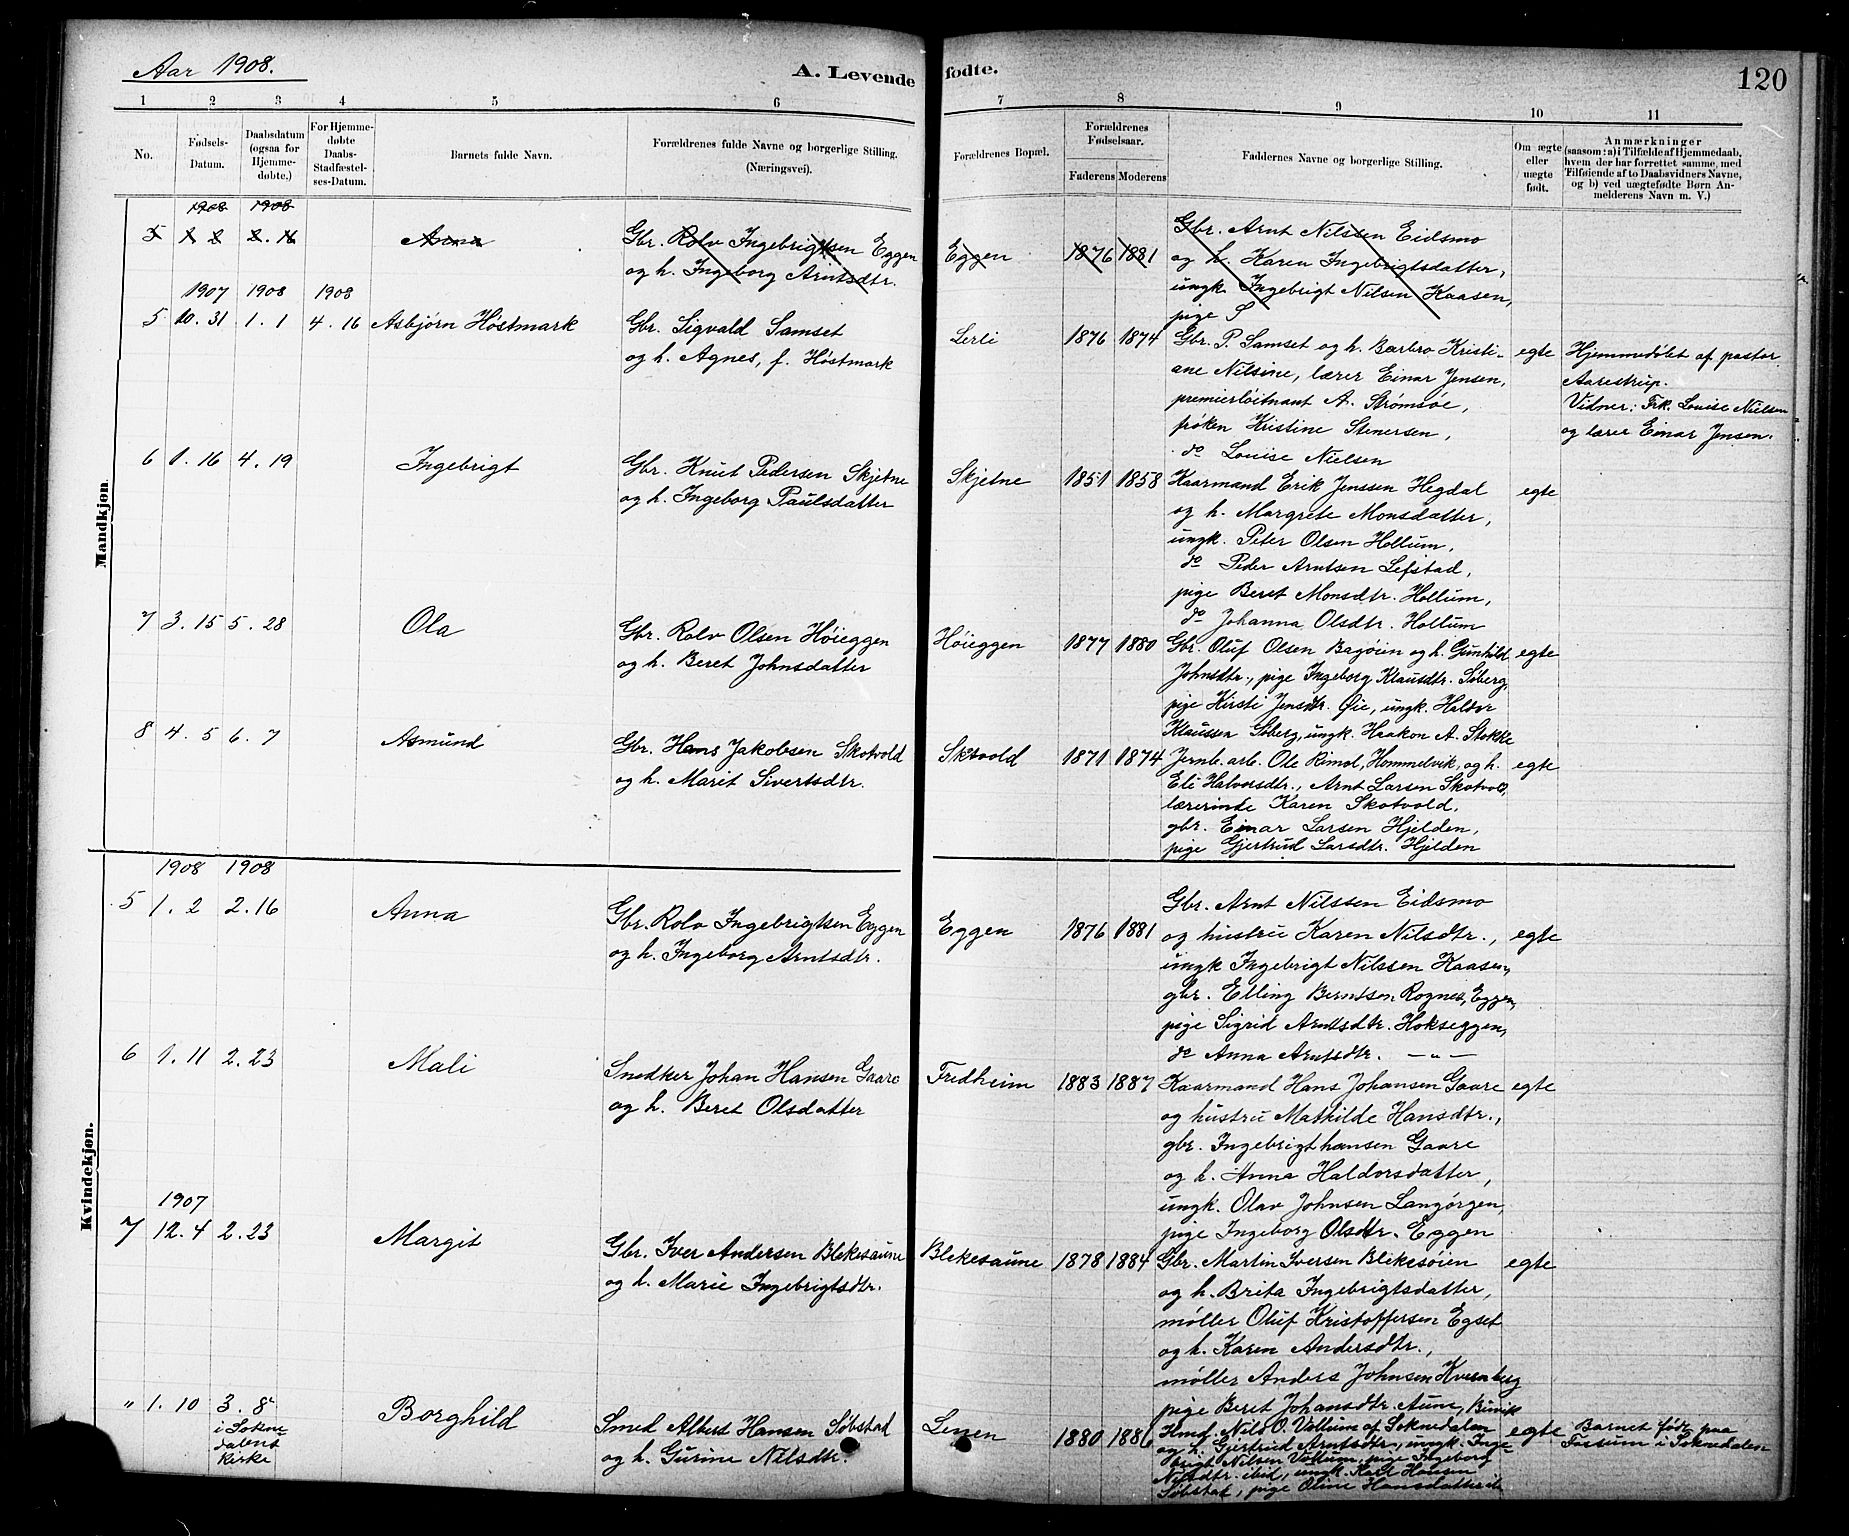 Aar 1908.
A. Levende fødte.
120
1 2 3 4 5 6 7 8 9 10 11
No.
Fødsels-
Datum.
Daabsdatum
(ogsaa for
Hjemme-
døbte.)
For Hjemme-
døbte
Daabs-
Stadfæstel-
ses-Datum.
Barnets fulde Navn.
Forældrenes fulde Navne og borgerlige Stilling.
(Næringsvei).
Forældrenes Bopæl.
Forældrenes
Fødselsaar.
Faderens Moderens
Faddernes Navne og borgerlige Stilling.
Om ægte
eller
uægte
født.
Anmærkninger
(saasom: a) i Tilfælde af Hjemmedaab,
hvem der har forrettet samme, med
Tilføiende af to Daabsvidners Navne,
og b) ved uægtefødte Børn An-
melderens Navn m. V.)
Mandkjøn.
1908 1908
5 1 2 2. 16 Anna
Gbr. Rolv Ingebrigtsen Eggen
og h. Ingeborg Arntsdtr.
Eggen 1876 1881
Gbr. Arnt Nilssen Eidsmo
og h. Karen Ingebrigtsdatter,
ungk. Ingebrigt Nilsen Kaasen,
pige S
1907 1908 1908
5 10. 31 1. 1 4. 16 Asbjørn Høstmark
Gbr. Sigvald Samset
og h. Agnes, f. Høstmark
Lerli 1876 1874
Gbr. P. Samset og h. Barbro Kristi-
ane Nilsine, lærer Einar Jensen,
premierløitnant A. Strømsøe,
frøken Kristine Stenersen,
do Louise Nielsen
egte
Hjemmedøbt af pastor
Aarestrup.
Vidner: Frk. Louise Nielsen
og lærer Einar Jensen.
6 1. 16 4. 19 Ingebrigt
Gbr. Knut Pedersen Skjetne
og h. Ingeborg Paulsdatter
Skjetne 1851 1858
Kaarmand Erik Jenssen Hegdal
og h. Margrete Monsdatter,
ungk. Peter Olsen Hollum,
do Peder Arntsen Lefstad,
pige Beret Monsdtr. Hollum,
do Johanna Olsdtr. Hollum
egte
7 3. 15 5. 28 Ola
Gbr. Rolv Olsen Høieggen
og h. Beret Johnsdatter
Høieggen 1877 1880
Gbr. Oluf Olsen Bagøien og h. Gunhild
Johnsdtr., pige Ingeborg Klausdtr. Søberg,
pige Kirsti Jensdtr. Øie, ungk. Haldor
Klaussen Søberg, ungk. Haakon A. Stokke
egte
8 4. 5 6. 7 Asmund
Gbr. Hans Jakobsen Skotvold
og h. Marit Sivertsdtr.
Skotvold 1871 1874
Jernb. arb. Ole Rimol, Hommelvik, og h.
Eli Halvorsdtr., Arnt Larsen Skotvold,
lærerinde Karen Skotvold,
gbr. Einar Larsen Hjelden,
pige Gjertrud Larsdtr. Hjelden
egte
Kvindekjøn.
1908 1908
5 1. 2 2. 16 Anna
Gbr. Rolv Ingebrigtsen Eggen
og h. Ingeborg Arntsdtr.
Eggen 1876 1881
Gbr. Arnt Nilssen Eidsmo
og hustru Karen Nilsdtr.,
ungk Ingebrigt Nilssen Kaasen,
gbr. Elling Berntsen Rognes, Eggen,
pige Sigrid Arntsdtr. Hokseggen,
do Anna Arntsdtr. — " —
egte
6 1. 11 2. 23 Mali
Snedker Johan Hansen Gaare
og h. Beret Olsdatter
Fredheim 1883 1887
Kaarmand Hans Johansen Gaare
og hustru Mathilde Hansdtr.,
gbr. Ingebrigt hansen Gaare
og h. Anna Haldorsdatter,
ungk. Olav Johnsen Langørgen,
pige Ingeborg Olsdtr. Eggen
egte
1907
7 12. 4 2. 23 Margit
Gbr. Iver Andersen Blekesaune
og h. Marie Ingebrigtsdtr.
Blekesaune 1878 1884
Gbr. Martin Iversen Blekesøien
og h. Brita Ingebrigtsdatter,
møller Oluf Kristoffersen Egset
og h. Karen Andersdtr.,
møller Anders Johnsen Kvernberg
pige Beret Johansdtr Aune, Buvik
egte
" 1. 10 3. 8
i Sokne
dalens
kirke
Borghild
Smed Albert Hansen Søbstad
og h. Gurine Nilsdtr.
Leeren 1880 1886
Hmd. Nils O. Vollum af Soknedalen
og h. Gjertrud Arntsdtr., ungk. Inge
brigt Nilsen Vollum, pige Ingeborg
Nilsdtr. ibid, ungk. Karl Hansen
Søbstad, pige Oline Hansdatter ib
egte
Barnet født paa
Fossum i Soknedalen